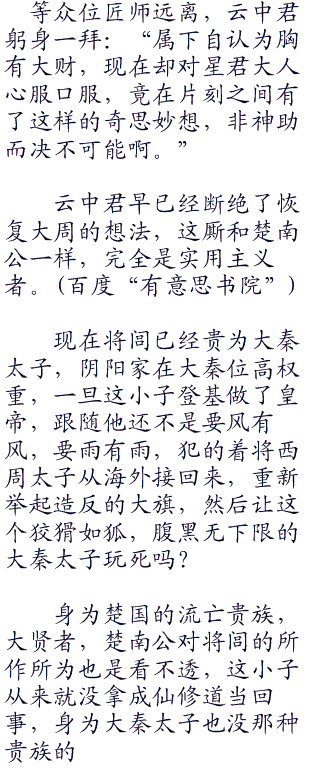 等众位匠师远离，云中君
躬身一拜：“属下自认为胸
有大财，现在却对星君大人
心服口服，竟在片刻之间有
了这样的奇思妙想，非神助
而决不可能啊。”
云中君早已经断绝了恢
复大周的想法，这厮和楚南
公一样，完全是实用主义
者。(百度“有意思书院”)
现在将闾已经贵为大秦
太子，阴阳家在大秦位高权
重，一旦这小子登基做了皇
帝，跟随他还不是要风有
风，要雨有雨，犯的着将西
周太子从海外接回来，重新
举起造反的大旗，然后让这
个狡猾如狐，腹黑无下限的
大秦太子玩死吗？
身为楚国的流亡贵族，
大贤者，楚南公对将闾的所
作所为也是看不透，这小子
从来就没拿成仙修道当回
事，身为大秦太子也没那种
贵族的